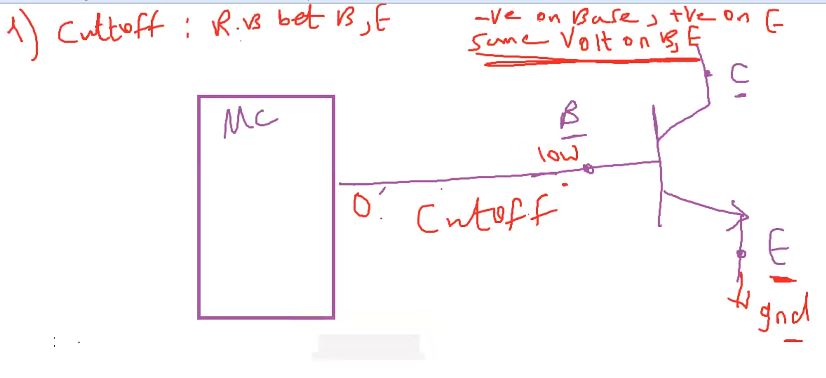 1) Cuttoff : R.B bet B,E
-ve on Base, +ve on E
Same Volt on B,E
C
MC
B
low
0
Cutoff
E
gnd